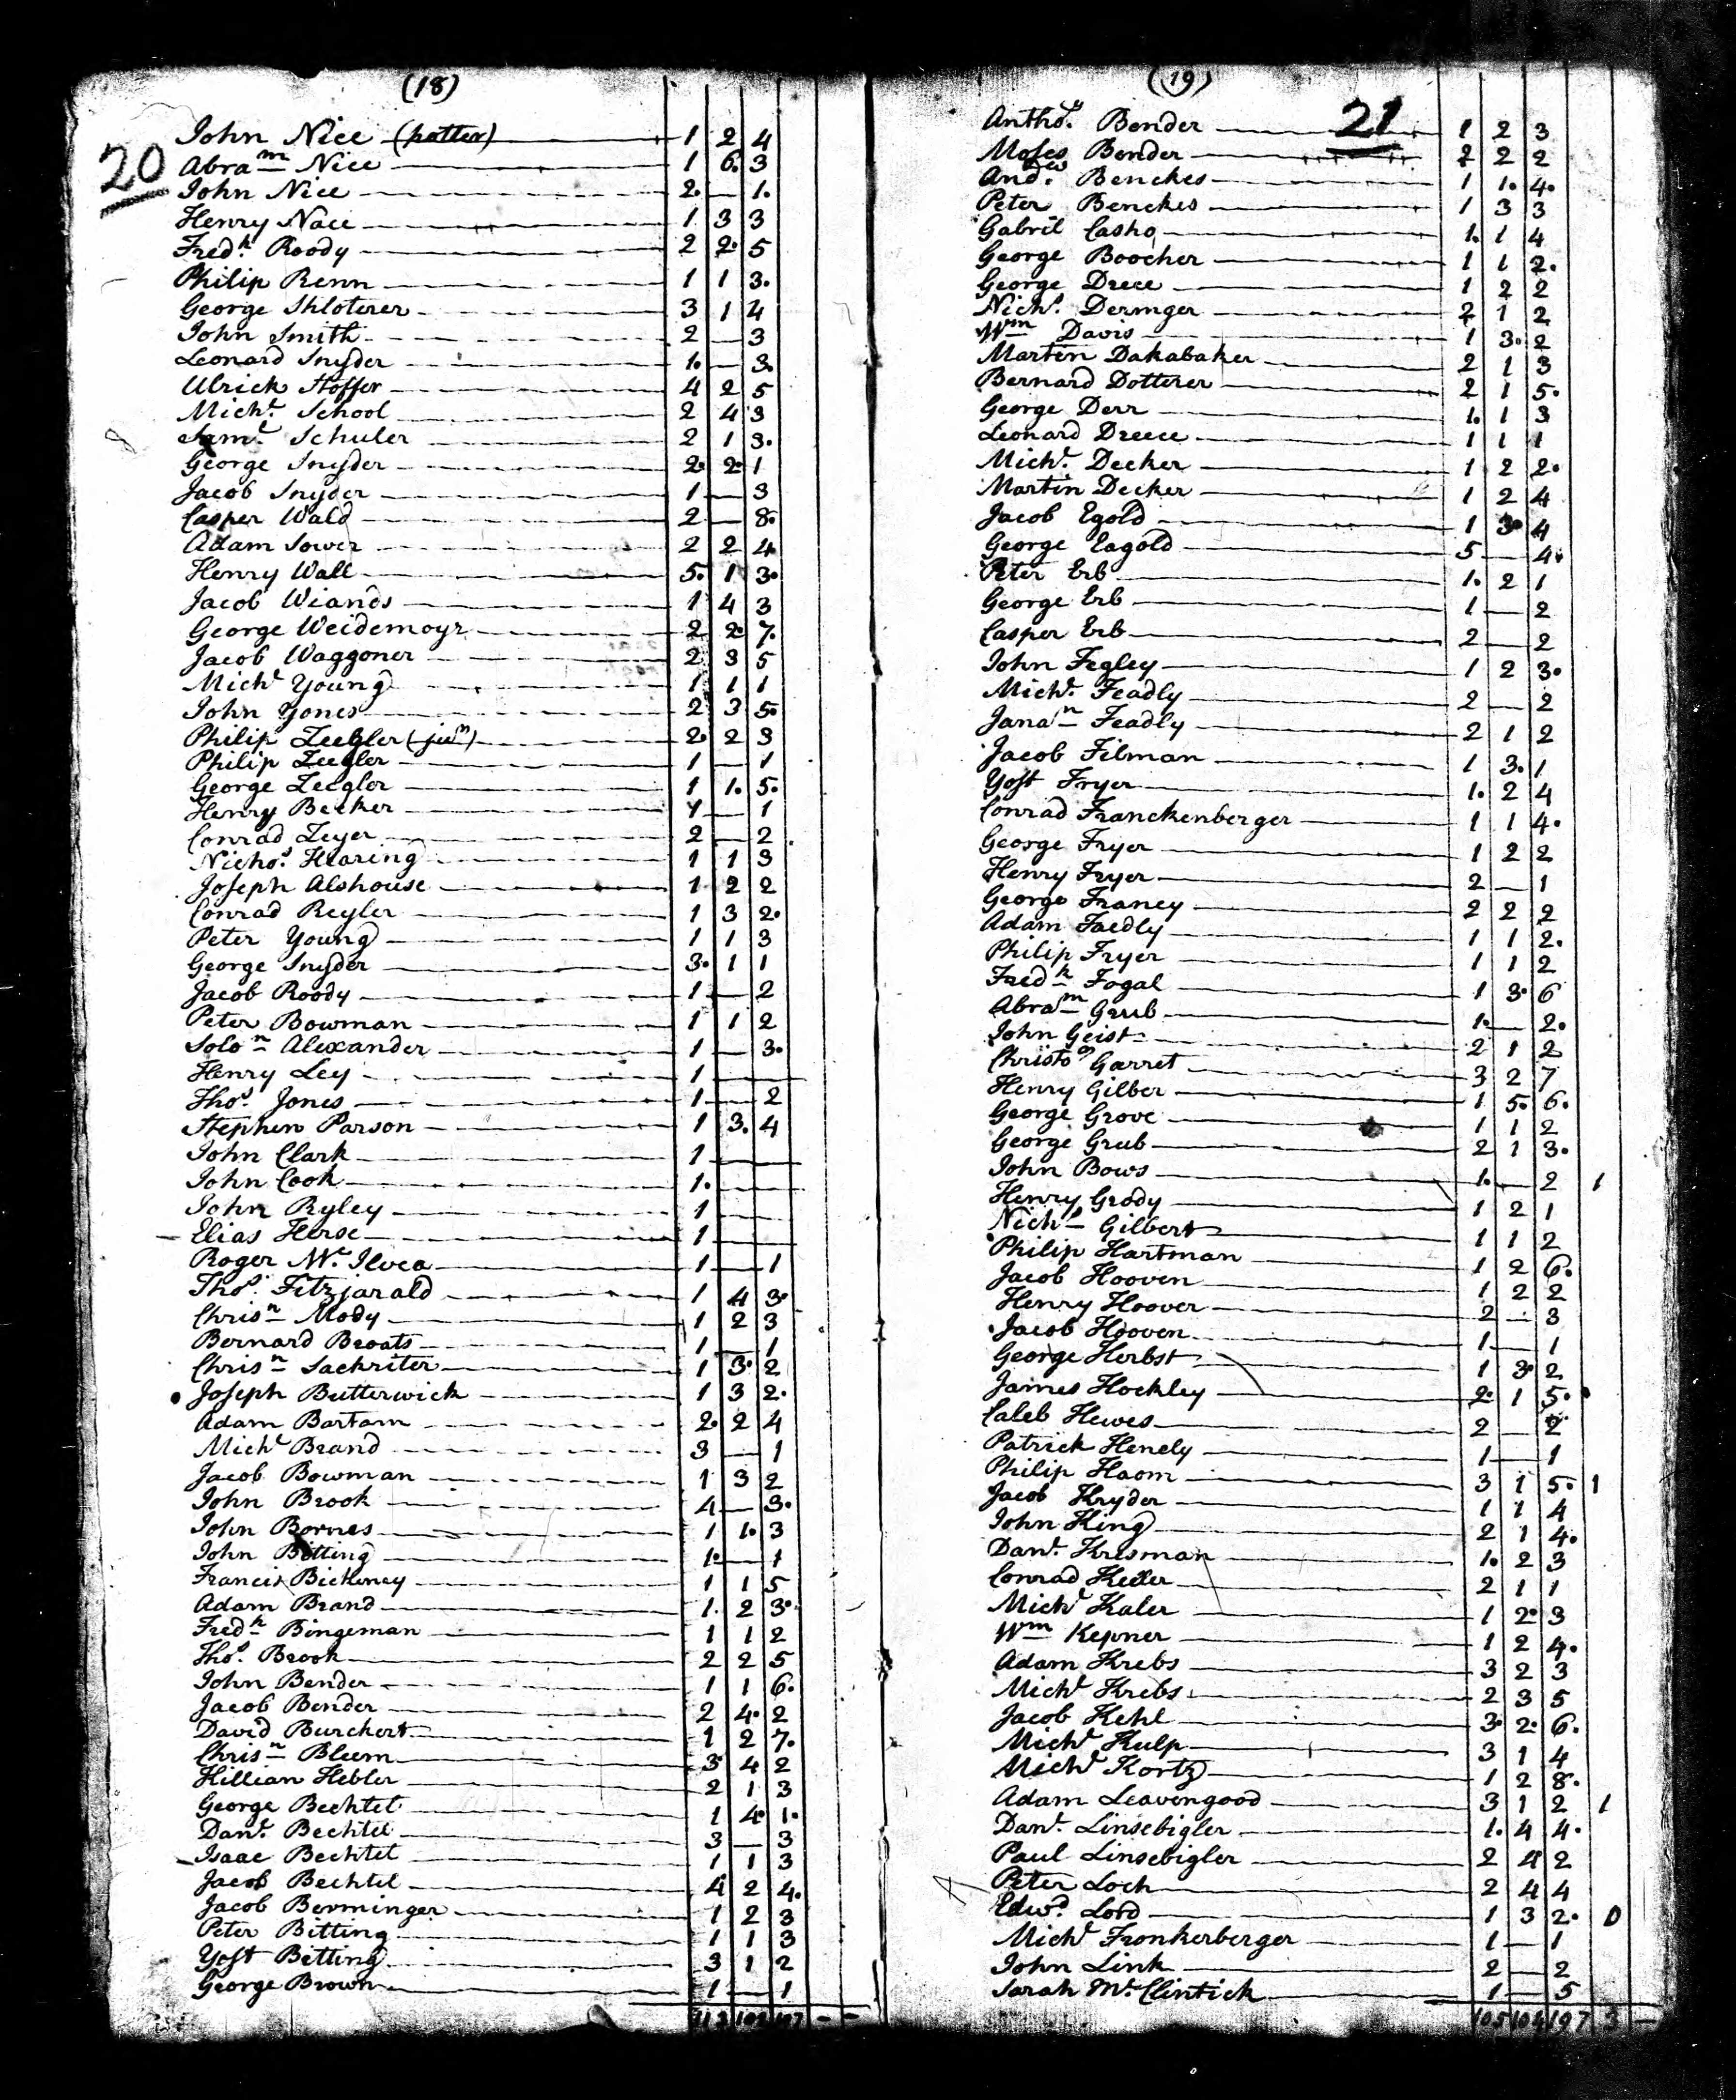 (18)
20
John Nice (potter) 1 2 4
Abra<sup>m</sup> Nice 1 6. 3
John Nice 2. — 1.
Henry Nace 1 3 3
Fred<sup>k</sup>. Roody 2 2. 5
Philip Renn 1 1 3.
George Shloterer 3 1 4
John Smith 2 — 3
Leonard Snyder 1. — 3.
Ulrick Stoffer 4 2 5
Mich<sup>l</sup>. School 2 4 3
Sam<sup>l</sup>. Schuler 2 1 3.
George Snyder 2. 2. 1
Jacob Snyder 1 — 3
Casper Wald 2 — 8.
Adam Sower 2 2 4.
Henry Wall 5. 1 3.
Jacob Wiands 1 4 3
George Weidemoyr 2 2. 7.
Jacob Waggoner 2 3 5
Mich<sup>l</sup> Young 1 1 1
John Yones 2 3 5.
Philip Zeegler (jun) 2. 2 3
Philip Zeegler 1 — 1
George Zeegler 1 1. 5.
Henry Becker 1 — 1
Conrad Zeyer 2 — 2
Nicho<sup>s</sup>. Hearing 1 1 3
Joseph Alshouse 1 2 2
Conrad Reyler 1 3 2.
Peter Young 1 1 3
George Snyder 3. 1 1
Jacob Roody 1 — 2
Peter Bowman 1 1 2
Solo<sup>n</sup> Alexander 1 — 3.
Henry Ley 1
Tho<sup>s</sup>. Jones 1 — 2
Stephen Parson 1 3. 4
John Clark 1
John Cook 1.
John Ryley 1
Elias Herse 1
Roger M<sup>c</sup> Ilvea 1 — 1
Tho<sup>s</sup>. Fitzjarald 1 4 3.
Chris<sup>n</sup> Mody 1 2 3
Bernard Broats 1 — 1
Chris<sup>n</sup> Sachriter 1 3. 2
Joseph Butterwick 1 3 2.
Adam Bartam 2. 2 4
Mich<sup>l</sup> Brand 3 — 1
Jacob Bowman 1 3 2
John Brook 4 — 3.
John Bornes 1 1. 3
John Bitting 1. — 1
Francis Bickeney 1 1 5
Adam Brand 1. 2 3.
Fred<sup>k</sup> Bingeman 1 1 2
Tho<sup>s</sup>. Brook 2 2 5
John Bender 1 1 6.
Jacob Bender 2 4. 2
David Burchert 1 2 7.
Chris<sup>n</sup> Bleem 3 4 2
Hillian Hebler 2 1 3
George Bechtel 1 4. 1.
Dan<sup>l</sup>. Bechtel 3 — 3
Isaac Bechtel 1 1 3
Jacob Bechtel 4 2 4.
Jacob Berminger 1 2 3
Peter Bitting 1 1 3
Yost Bitting 3 1 2
George Brown 1 — 1
(19)
21
Antho<sup>y</sup>. Bender 1 2 3
Moses Bender 2 2 2
And<sup>w</sup>. Benckes 1 1. 4.
Peter Benckes 1 3 3
Gabril Casho 1. 1 4
George Boocher 1 1 2.
George Dreee 1 2 2
Nich<sup>s</sup>. Deringer 2 1 2
W<sup>m</sup> Davis 1 3. 2
Martin Dakabaker 2 1 3
Bernard Dotterer 2 1 5.
George Derr 1. 1 3
Leonard Dreece 1 1 1
Mich<sup>l</sup>. Decker 1 2 2.
Martin Decker 1 2 4
Jacob Egold 1 3. 4
George Eagold 5 — 4.
Peter Erb 1. 2 1
George Erb 1 — 2
Casper Erb 2 — 2
John Fegley 1 2 3.
Mich<sup>l</sup>. Feadly 2 — 2
Jana<sup>n</sup> Feadly 2 1 2
Jacob Filman 1 3. 1
Yost Fryer 1. 2 4
Conrad Franckenberger 1 1 4.
George Fryer 1 2 2
Henry Fryer 2 — 1
George Francy 2 2 2
Adam Faedly 1 1 2.
Philip Fryer 1 1 2
Fred<sup>k</sup> Fogal 1 3. 6
Abra<sup>m</sup> Grub 1. — 2.
John Geist 2 1 2
Christo<sup>r</sup> Garret 3 2 7
Henry Gilber 1 5. 6.
George Grove 1 1 2
George Grub 2 1 3.
John Bows 1. — 2 1
Henry Grody 1 2 1
Nich<sup>s</sup> Gilbert 1 1 2
Philip Hartman 1 2 6.
Jacob Hooven 1 2 2
Henry Hoover 2 — 3
Jacob Hooven 1 — 1
George Herbst 1 3. 2
James Hockley 2. 1 5.
Caleb Hewes 2 — 2
Patrick Henely 1 — 1
Philip Haom 3 1 5. 1
Jacob Kryder 1 1 4
John King 2 1 4.
Dan<sup>l</sup>. Kresman 1. 2 3
Conrad Keeler 2 1 1
Mich<sup>l</sup> Kaler 1 2. 3
W<sup>m</sup> Kepner 1 2 4.
Adam Krebs 3 2 3
Mich<sup>l</sup> Krebs 2 3 5
Jacob Kehl 3. 2. 6.
Mich<sup>l</sup> Kulp 3 1 4
Mich<sup>l</sup> Kortz 1 2 8.
Adam Leavengood 3 1 2 1
Dan<sup>l</sup>. Linsebigler 1. 4 4.
Paul Linsebigler 2 4 2
Peter Loch 2 4 4
Edw<sup>d</sup>. Lord 1 3 2. 0
Mich<sup>l</sup> Fronkerberger 1 — 1
John Link 2 — 2
Sarah M<sup>c</sup> Clintick 1 — 5
105 104 197 3 —